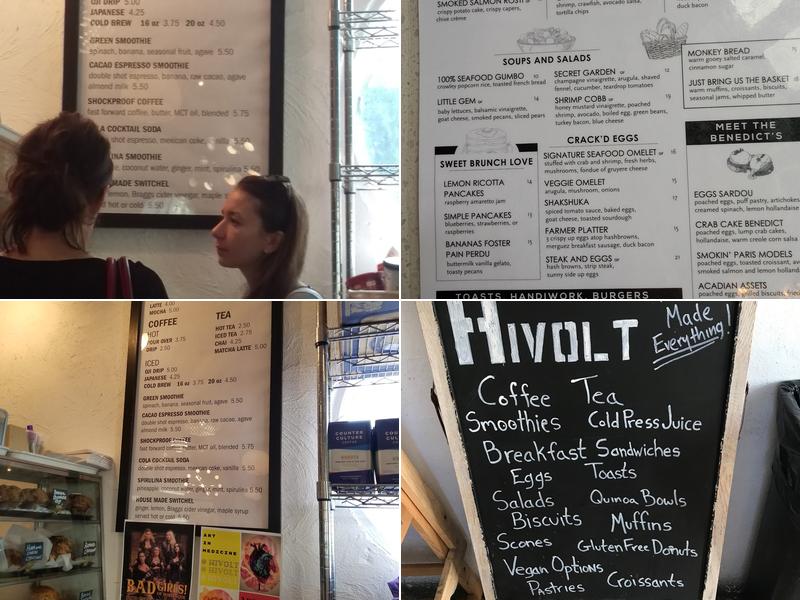 OJI DRIP 5.00
JAPANESE 4.25
COLD BREW 16 oz 3.75 20 oz 4.50
GREEN SMOOTHIE
spinach, banana, seasonal fruit, agave 5.50
CACAO ESPRESSO SMOOTHIE
double shot espresso, banana, raw cacao, agave
almond milk 5.50
SHOCKPROOF COFFEE
fast forward coffee, butter, MCT oil, blended 5.75
COCKTAIL SODA
espresso, mexican coke, 5.50
SMOOTHIE
coconut water, ginger, mint, spirulina 5.50
MADE SWITCHEL
lemon, Braggs cider vinegar, maple
hot or cold 5.50
SMOKED SALMON ROSTI
crispy potato cake, crispy capers,
chive crème
shrimp, crawfish, avocado salsa,
tortilla chips
duck bacon
SOUPS AND SALADS
100% SEAFOOD GUMBO 10
crowley popcorn rice, toasted french bread
LITTLE GEM GF 14
baby lettuces, balsamic vinaigrette,
goat cheese, smoked pecans, sliced pears
SECRET GARDEN GF 12
champagne vinaigrette, arugula, shaved
fennel, cucumber, teardrop tomatoes
SHRIMP COBB GF 19
honey mustard vinaigrette, poached
shrimp, avocado, boiled egg, green beans,
turkey bacon, blue cheese
MONKEY BREAD
warm gooey salted caramel,
cinnamon sugar
JUST BRING US THE BASKET
warm muffins, croissants, biscuits,
seasonal jams, whipped butter
SWEET BRUNCH LOVE
LEMON RICOTTA 14
PANCAKES
raspberry amaretto jam
SIMPLE PANCAKES 13
blueberries, strawberries, or
raspberries
BANANAS FOSTER 15
PAIN PERDU
buttermilk vanilla gelato,
toasty pecans
CRACK'D EGGS
SIGNATURE SEAFOOD OMELET GF 16
stuffed with crab and shrimp, fresh herbs,
mushrooms, fondue of gruyere cheese
VEGGIE OMELET 15
arugula, mushroom, onions
SHAKSHUKA 17
spiced tomato sauce, baked eggs,
goat cheese, toasted sourdough
FARMER PLATTER 15
3 crispy up eggs atop hashbrowns,
merguez breakfast sausage, duck bacon
STEAK AND EGGS GF 21
hash browns, strip steak,
sunny side up eggs
MEET THE
BENEDICT'S
EGGS SARDOU
poached eggs, puff pastry, artichokes,
creamed spinach, lemon hollandaise
CRAB CAKE BENEDICT
poached eggs, lump crab cakes,
hollandaise, warm creole corn salsa
SMOKIN' PARIS MODELS
poached eggs, toasted croissant,
smoked salmon and lemon
ACADIAN ASSETS
poached eggs, grilled biscuits,
TOASTS, HANDIWORK, BURGERS
LATTE 4.00
MOCHA 5.00
COFFEE
HOT
POUR OVER 3.75
DRIP 2.50
TEA
HOT TEA 2.50
ICED TEA 2.75
CHAI 4.25
MATCHA LATTE 5.00
ICED
OJI DRIP 5.00
JAPANESE 4.25
COLD BREW 16 oz 3.75 20 oz 4.50
GREEN SMOOTHIE
spinach, banana, seasonal fruit, agave 5.50
CACAO ESPRESSO SMOOTHIE
double shot espresso, banana, raw cacao, agave
almond milk 5.50
SHOCKPROOF COFFEE
fast forward coffee, butter, MCT oil, blended 5.75
COLA COCKTAIL SODA
double shot espresso, mexican coke, vanilla 5.50
SPIRULINA SMOOTHIE
pineapple, coconut water, ginger, mint, spirulina 5.50
HOUSE MADE SWITCHEL
ginger, lemon, Braggs cider vinegar, maple syrup
served hot or cold 5.50
COUNTER
CULTURE
COFFEE
COUNTER
CULTURE
BAD GIRLS!
ART
IN
MEDICINE
@ HIVOLT
HIVOLT
Made
Everything!
Coffee Tea
Smoothies Cold Press Juice
Breakfast Sandwiches
Eggs Toasts
Salads Quinoa Bowls
Biscuits Muffins
Scones Gluten Free Donuts
Vegan Options
Pastries Croissants